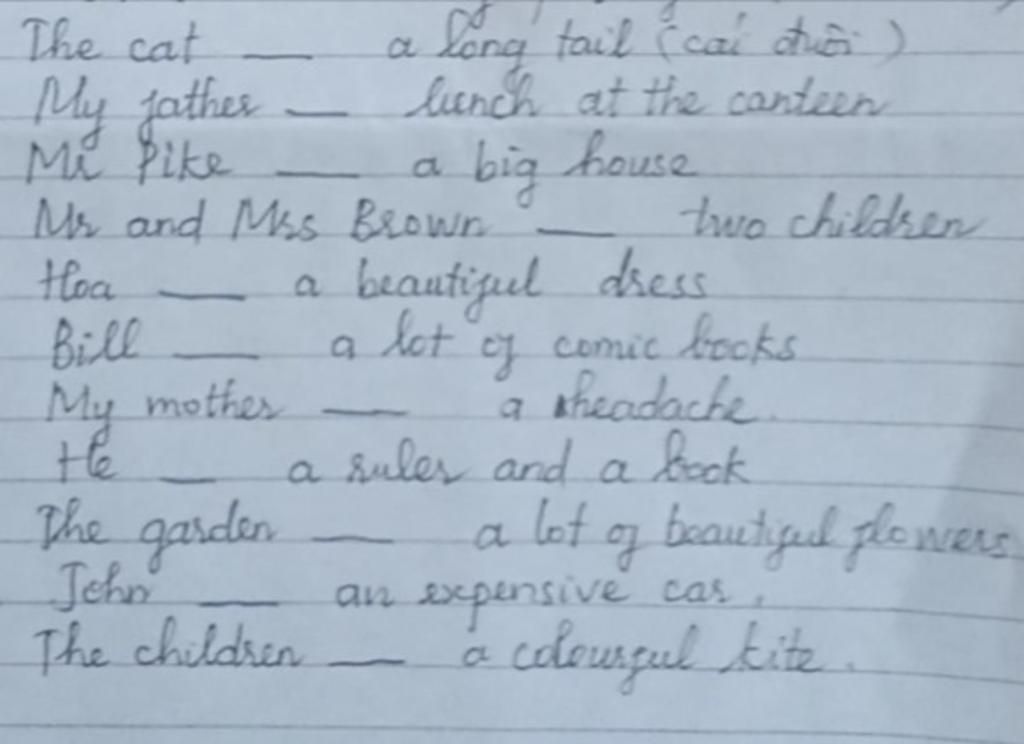 The cat ___ a long tail (cái đuôi)
My father ___ lunch at the canteen
Mr Pike ___ a big house
Mr and Mrs Brown ___ two children
Hoa ___ a beautiful dress
Bill ___ a lot of comic books
My mother ___ a headache.
He ___ a ruler and a book
The garden ___ a lot of beautiful flowers
John ___ an expensive car.
The children ___ a colourful kite.